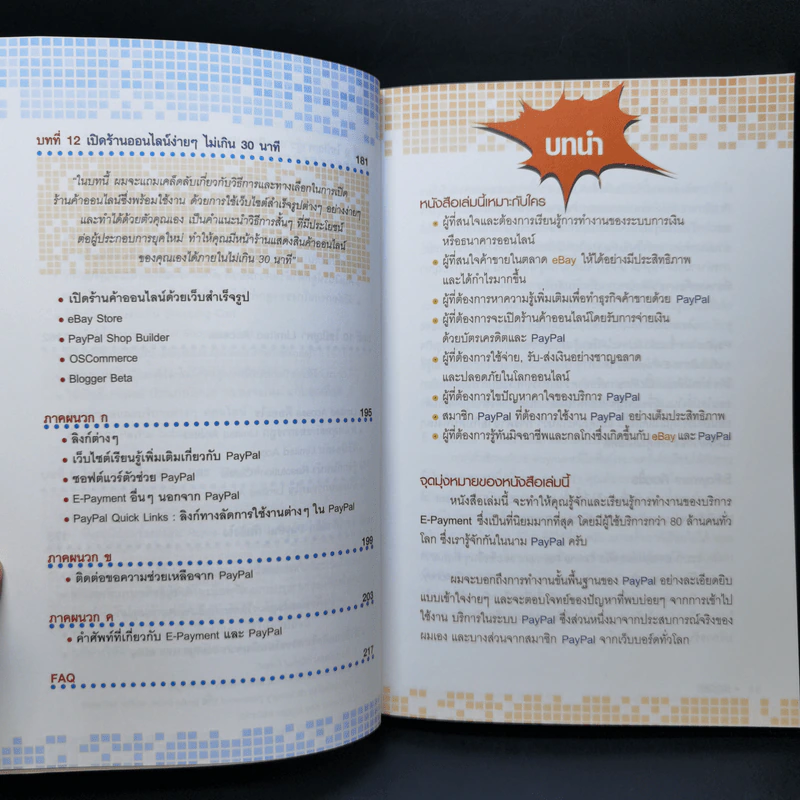 บทที่ 12 เปิดร้านออนไลน์ง่ายๆ ไม่เกิน 30 นาที
181
"ในบทนี้ ผมจะแถมเคล็ดลับเกี่ยวกับวิธีการและทางเลือกในการเปิด
ร้านค้าออนไลน์ซึ่งพร้อมใช้งาน ด้วยการใช้เว็บไซต์สำเร็จรูปต่างๆ อย่างง่ายๆ
และทำได้ด้วยตัวคุณเอง เป็นคำแนะนำวิธีการสั้นๆ ที่มีประโยชน์
ต่อผู้ประกอบการยุคใหม่ ทำให้คุณมีหน้าร้านแสดงสินค้าออนไลน์
ของคุณเองได้ภายในไม่เกิน 30 นาที"
• เปิดร้านค้าออนไลน์ด้วยเว็บสำเร็จรูป
• eBay Store
• PayPal Shop Builder
• OSCommerce
• Blogger Beta
ภาคผนวก ก 195
• ลิงก์ต่างๆ
• เว็บไซต์เรียนรู้เพิ่มเติมเกี่ยวกับ PayPal
• ซอฟต์แวร์ตัวช่วย PayPal
• E-Payment อื่นๆ นอกจาก PayPal
• PayPal Quick Links : ลิงก์ทางลัดการใช้งานต่างๆ ใน PayPal
ภาคผนวก ข 199
• ติดต่อขอความช่วยเหลือจาก PayPal
ภาคผนวก ค 203
• คำศัพท์ที่เกี่ยวกับ E-Payment และ PayPal
FAQ 217
บทนำ
หนังสือเล่มนี้เหมาะกับใคร
• ผู้ที่สนใจและต้องการเรียนรู้การทำงานของระบบการเงิน
หรือธนาคารออนไลน์
• ผู้ที่สนใจค้าขายในตลาด eBay ให้ได้อย่างมีประสิทธิภาพ
และได้กำไรมากขึ้น
• ผู้ที่ต้องการหาความรู้เพิ่มเติมเพื่อทำธุรกิจค้าขายด้วย PayPal
• ผู้ที่ต้องการจะเปิดร้านค้าออนไลน์โดยรับการจ่ายเงิน
ด้วยบัตรเครดิตและ PayPal
• ผู้ที่ต้องการใช้จ่าย, รับ-ส่งเงินอย่างชาญฉลาด
และปลอดภัยในโลกออนไลน์
• ผู้ที่ต้องการไขปัญหาคาใจของบริการ PayPal
• สมาชิก PayPal ที่ต้องการใช้งาน PayPal อย่างเต็มประสิทธิภาพ
• ผู้ที่ต้องการรู้ทันมิจฉาชีพและกลโกงซึ่งเกิดขึ้นกับ eBay และ PayPal
จุดมุ่งหมายของหนังสือเล่มนี้
หนังสือเล่มนี้ จะทำให้คุณรู้จักและเรียนรู้การทำงานของบริการ
E-Payment ซึ่งเป็นที่นิยมมากที่สุด โดยมีผู้ใช้บริการกว่า 80 ล้านคนทั่ว
โลก ซึ่งเรารู้จักกันในนาม PayPal ครับ
ผมจะบอกถึงการทำงานขั้นพื้นฐานของ PayPal อย่างละเอียดยิบ
แบบเข้าใจง่ายๆ และจะตอบโจทย์ของปัญหาที่พบบ่อยๆ จากการเข้าไป
ใช้งาน บริการในระบบ PayPal ซึ่งส่วนหนึ่งมาจากประสบการณ์จริงของ
ผมเอง และบางส่วนจากสมาชิก PayPal จากเว็บบอร์ดทั่วโลก